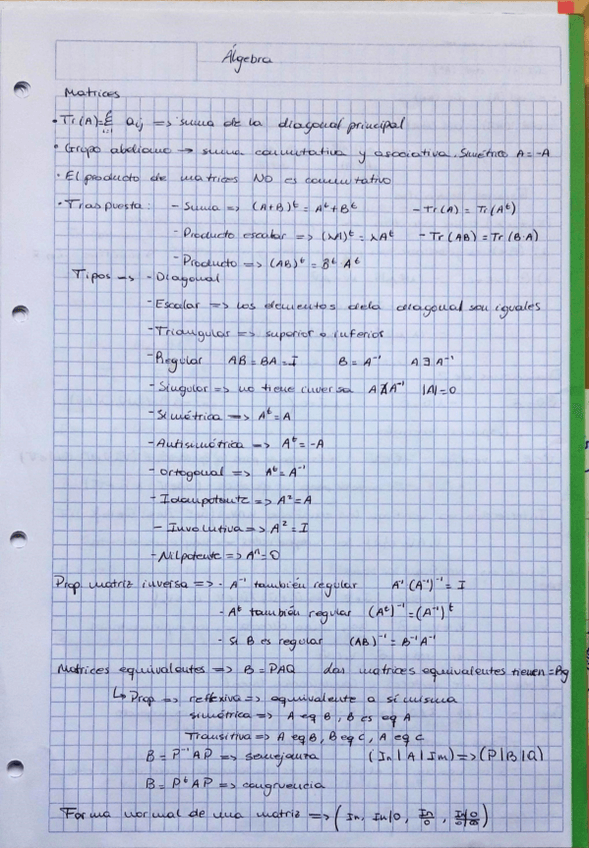 Álgebra
Matrices
· Tr(A)=Σ aij => suma de la diagonal principal
· Grupo abeliano -> suma conmutativa y asociativa. Simétrico A=-A
· El producto de matrices NO es conmutativo
· Traspuesta: - Suma => (A+B)^t = A^t+B^t - Tr(A) = Tr(A^t)
- Producto escalar => (λA)^t = λA^t - Tr(AB) = Tr(B·A)
- Producto => (AB)^t = B^t·A^t
Tipos -> - Diagonal
- Escalar => los elementos de la diagonal son iguales
- Triangular => superior o inferior
- Regular AB = BA = I B = A^-1 A∃A^-1
- Singular => no tiene inversa A∄A^-1 |A|=0
- Simétrica => A^t = A
- Autisimétrica => A^t = -A
- Ortogonal => A^t = A^-1
- Idempotente => A² = A
- Involutiva => A² = I
- Nilpotente => A^n = 0
Prop matriz inversa => - A^-1 también regular A^1 (A^-1)^-1 = I
- A^t también regular (A^t)^-1 = (A^-1)^t
- Si B es regular (AB)^-1 = B^-1 A^-1
Matrices equivalentes => B = PAQ dos matrices equivalentes tienen = Rg
↳ Prop => reflexiva => equivalente a sí misma
simétrica => A eq B, B es eq A
Transitiva => A eq B, B eq C, A eq C
B = P^-1 AP => semejanza (In|A|Im) => (P|B|Q)
B = P^t AP => congruencia
Forma normal de una matriz => (In, In|0, In/0, In|0/0|0)